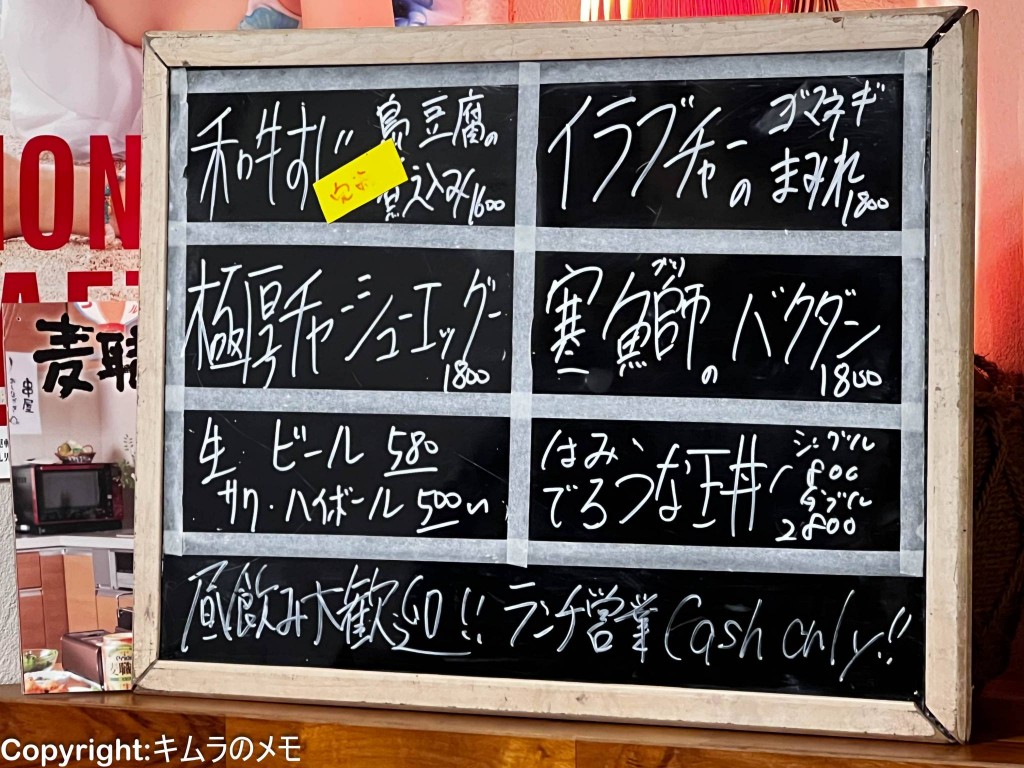 和牛すじ
島豆腐の
煮え込み 1600
完売
イラブチャーの
ゴマネギ
まみれ 1800
極厚チャーシューエッグ
1800
寒鰤の バクダン
ブリ
1800
生 ビール 580
サワ・ハイボール 500い
はみ
でろうな玉丼
800
2800
昼飲み大歓迎!! ランチ営業 Cash only!!
ION
麦職
串屋
Copyright:キムラのメモ